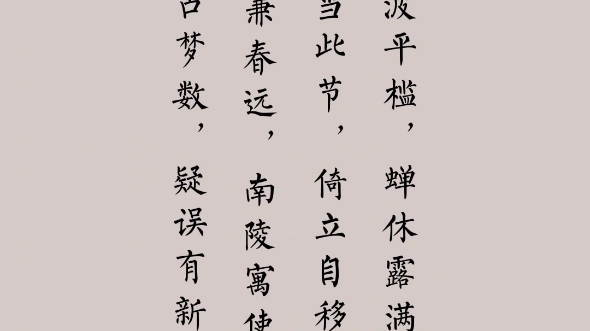 波平槛，蝉休露满
当此节，倚立自移
兼春远，南陵寓使
占梦数，疑误有新